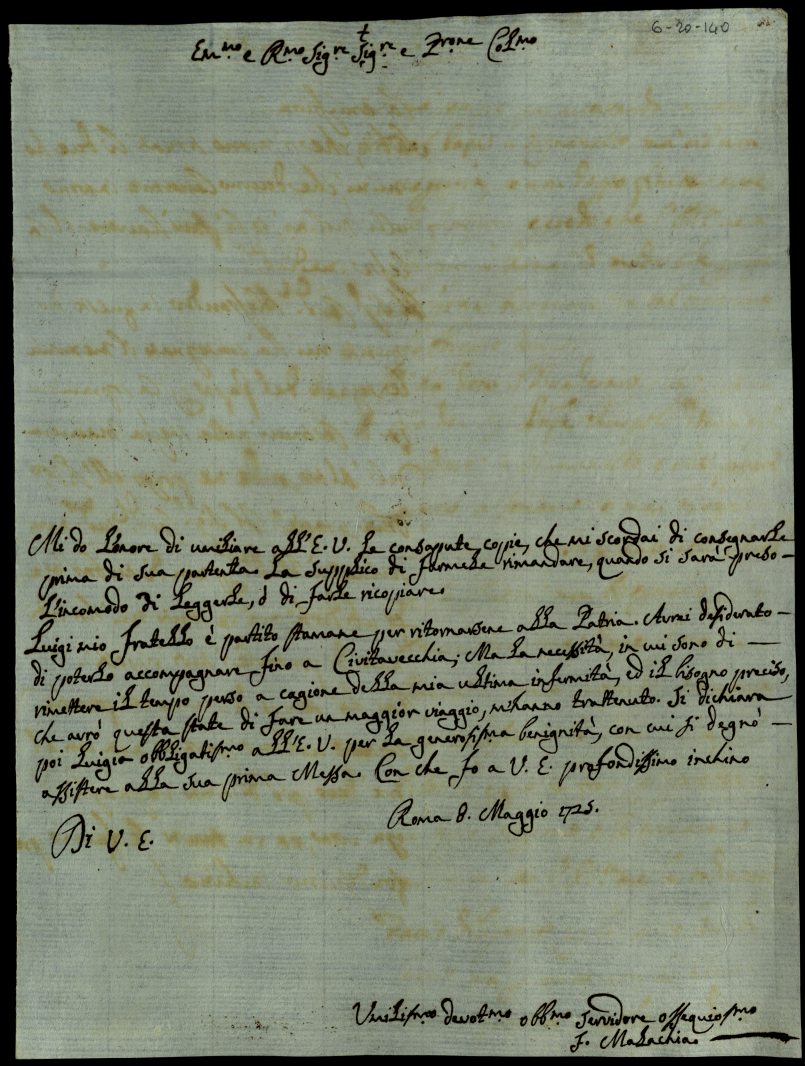 6-20-140
†
Em.mo e R.mo Sig.re Sig.re e P.rone Col.mo
Mi do l'onore di umiliare all'E. V. le consapute copie, che mi scordai di consegnarle
prima di sua partenza. La supplico di farmele rimandare, quando si sarà preso
l'incomodo di leggerle, ò di farle ricopiare.
Luigi mio fratello è partito stamane per ritornarsene alla Patria. Avrei desiderato
di poterlo accompagnare fino a Civitavecchia; Ma la necessità, in cui sono di
rimettere il tempo perso a cagione della mia ultima infermità, ed il bisogno preciso,
che avrò questa state di fare un maggior viaggio, mi hanno trattenuto. Si dichiara
poi Luigi obbligatis.mo all'E. V. per la generosis.ma benignità, con cui si degnò
assistere alla sua prima Messa. Con che fo a V. E. profondissimo inchino
Roma 8. Maggio 1725.
Di V. E.
Umilis.mo devot.mo obb.mo servidore ossequios.mo
F. Malachia